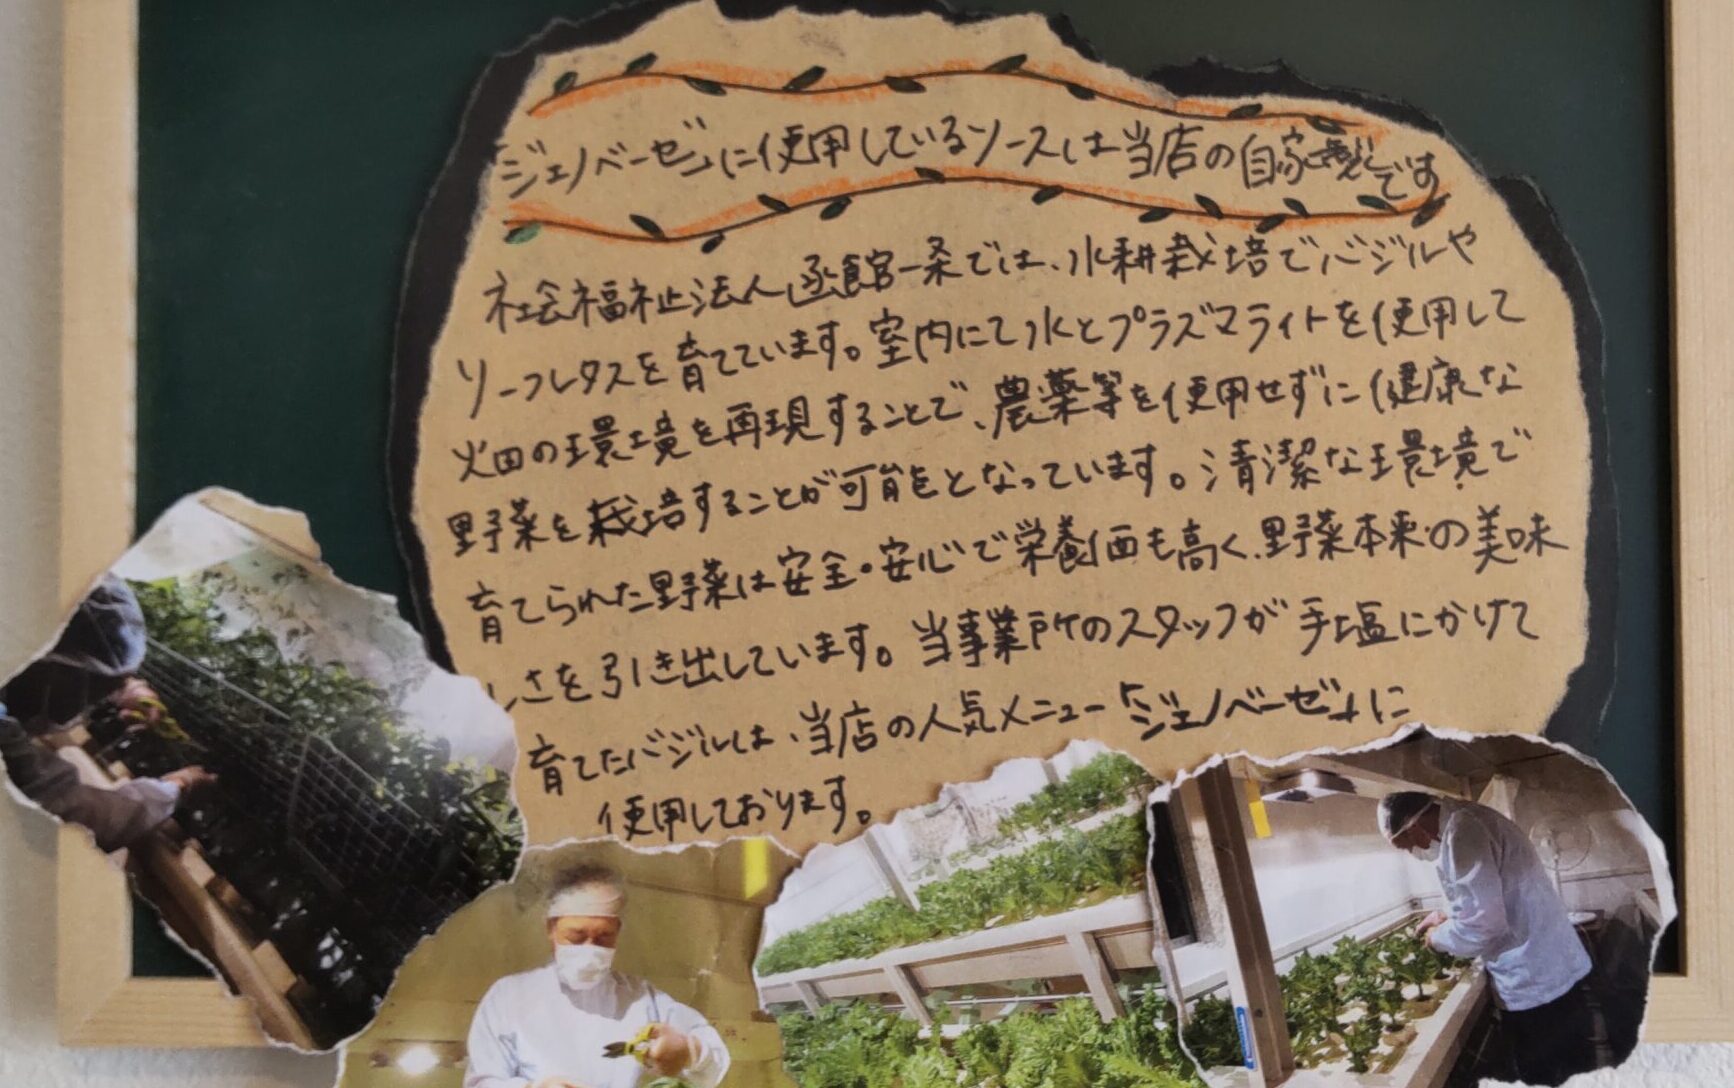 「ジェノベーゼ」に使用しているソースは当店の自家製です
社会福祉法人函館一条では、水耕栽培でバジルや
リーフレタスを育てています。室内にて水とプラズマライトを使用して
畑の環境を再現することで、農薬等を使用せずに健康な
野菜を栽培することが可能となっています。清潔な環境で
育てられた野菜は安全・安心で栄養価も高く、野菜本来の美味
しさを引き出しています。当事業所のスタッフが手塩にかけて
育てたバジルは、当店の人気メニュー「ジェノベーゼ」に
使用しております。